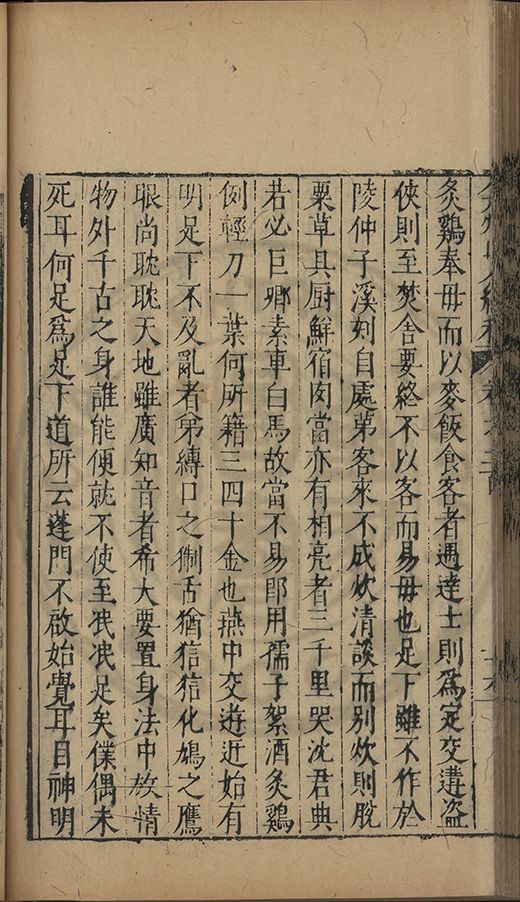 炙鷄奉毋而以麥飯食客者遇達士則爲定交遘盜
俠則至焚舍要終不以客而易毋也足下雖不作於
陵仲子溪刻自處第客來不成炊清談而別炊則脫
粟草具厨鮮宿肉當亦有相亮者三千里哭沈君典
若必巨鄉素車白馬故當不易郎用孺子絮酒炙鷄
例輕刀一葉何所籍三四十金也燕中交遊近始有
明足下不及亂者第縛口之猘舌猶狺狺化鳩之鷹
眼尚眈眈天地雖廣知音者希大要置身法中放情
物外千古之身誰能便就不使至泯泯足矣僕偶未
死耳何足爲足下道所云蓬門不啟始覺耳目神明